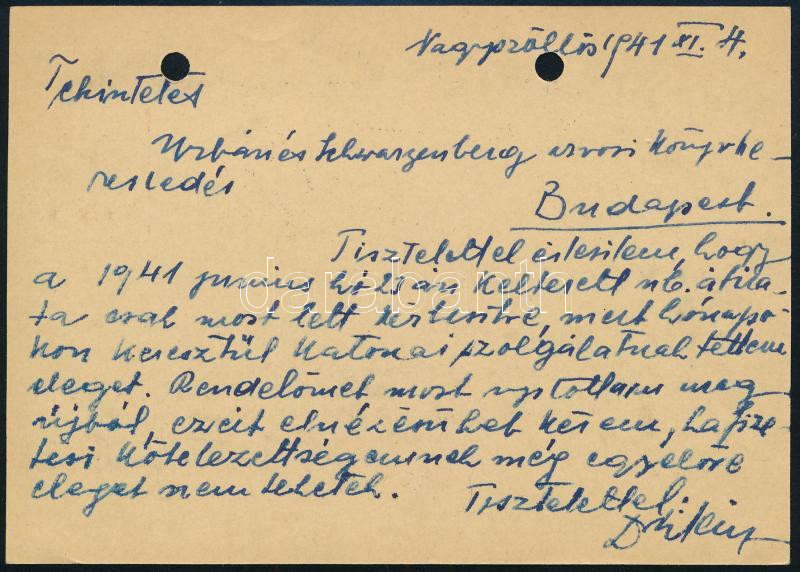 Nagyszöllös 1941 XI. 4.
Tekintetes
Urbán és Schwarzenberg orvosi Könyvke-
reskedés
Budapest.
Tisztelettel értesitem, hogy
a 1941 junius hó Keltezett nb. átira-
ta csak most lett kézbesitve, mert hónapo-
kon keresztül Katonai szolgálatnak tettem
eleget. Rendelömet most nyitottam meg
újból, ezért elnézésüket kérem, ha fize-
tesi Kötelezettségemnek még egyelöre
eleget nem tehetek.
Tisztelettel:
Dr
darabanth